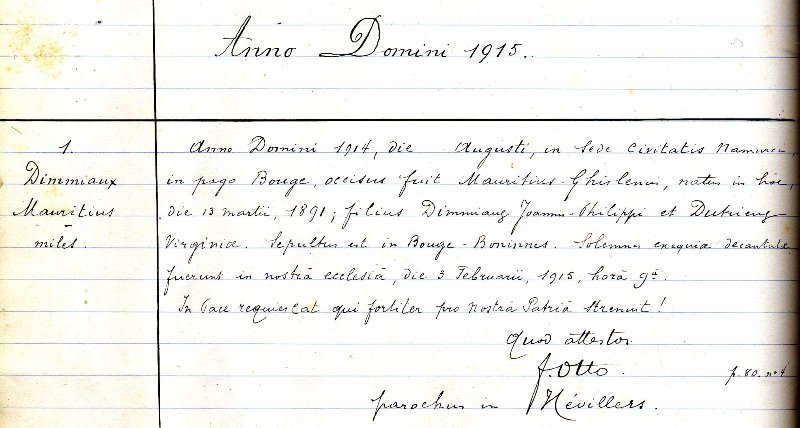 Anno Domini 1915.
1.
Dimmiaux
Mauritius
miles.
Anno Domini 1914, die Augusti, in Sede Civitatis Namurcen,
in pago Bouge, occisus fuit Mauritius-Ghislenus, natus in hoc,
die 13 martii, 1891; filius Dimmiaux Joannis-Philippi et
Virginiæ. Sepultus est in Bouge-Boninnes. Solemnes exequiæ decantatæ
fuerunt in nostrâ ecclesiâ, die 3 Februarii, 1915, horâ 9â.
In Pace requiescat qui fortiter pro Nostrâ Patriâ
Quod attestor.
J. Otto.
p. 80. n° 4
parochus in Hévillers.